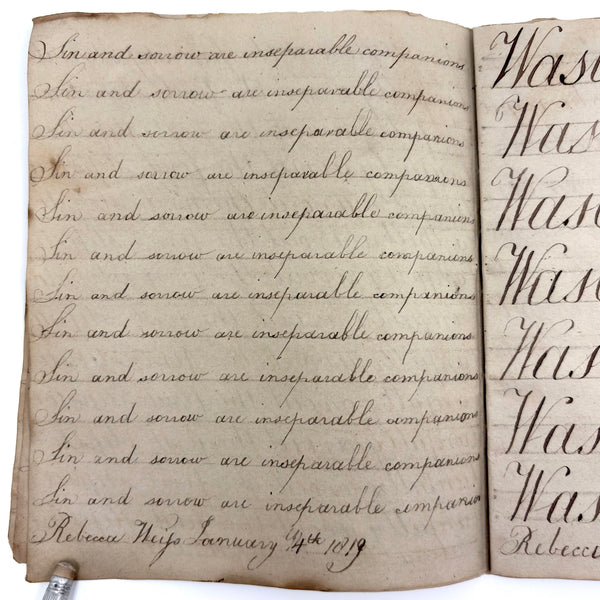 Sin and sorrow are inseparable companions
Sin and sorrow are inseparable companions
Sin and sorrow are inseparable companions
Sin and sorrow are inseparable companions
Sin and sorrow are inseparable companions
Sin and sorrow are inseparable companions
Sin and sorrow are inseparable companions
Sin and sorrow are inseparable companions
Sin and sorrow are inseparable companions
Sin and sorrow are inseparable companions
Sin and sorrow are inseparable companions
Sin and sorrow are inseparable companions
Rebecca Weiſs January 4th 1819
Was
Was
Was
Was
Was
Was
Was
Rebecc